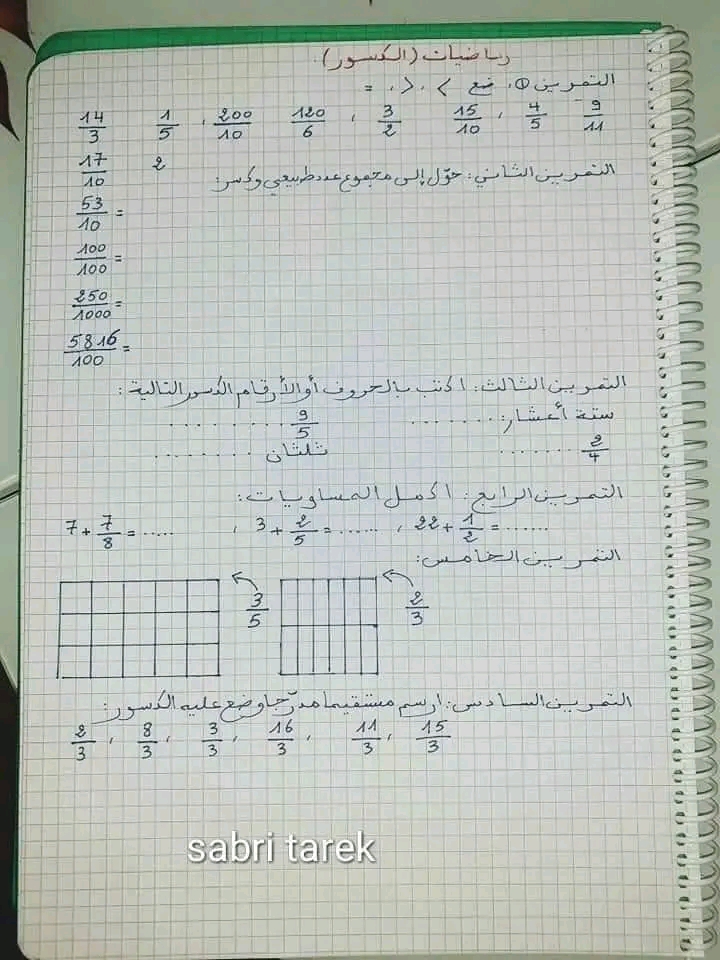 رياضيات (الكسور)
التمرين ①، ضع > ، < ، =
14/3 1/5 ، 200/10 120/6 ، 3/2 15/10 ، 4/5 9/11
17/10 2
التمرين الثاني: حوّل إلى مجموع عدد طبيعي وكسر:
53/10 =
100/100 =
250/1000 =
5816/100 =
التمرين الثالث: اكتب بالحروف أو الأرقام الكسور التالية:
ستة أعشار: ........ 9/5 ..........
2/4 ........ ثلثان ........
التمرين الرابع: اكمل المساويات:
7 + 7/8 = ..... ، 3 + 2/5 = ...... ، 22 + 1/2 = ......
التمرين الخامس:
3/5 2/3
التمرين السادس: ارسم مستقيما مدرّجا وضع عليه الكسور:
2/3 ، 8/3 ، 3/3 ، 16/3 ، 11/3 ، 15/3
sabri tarek